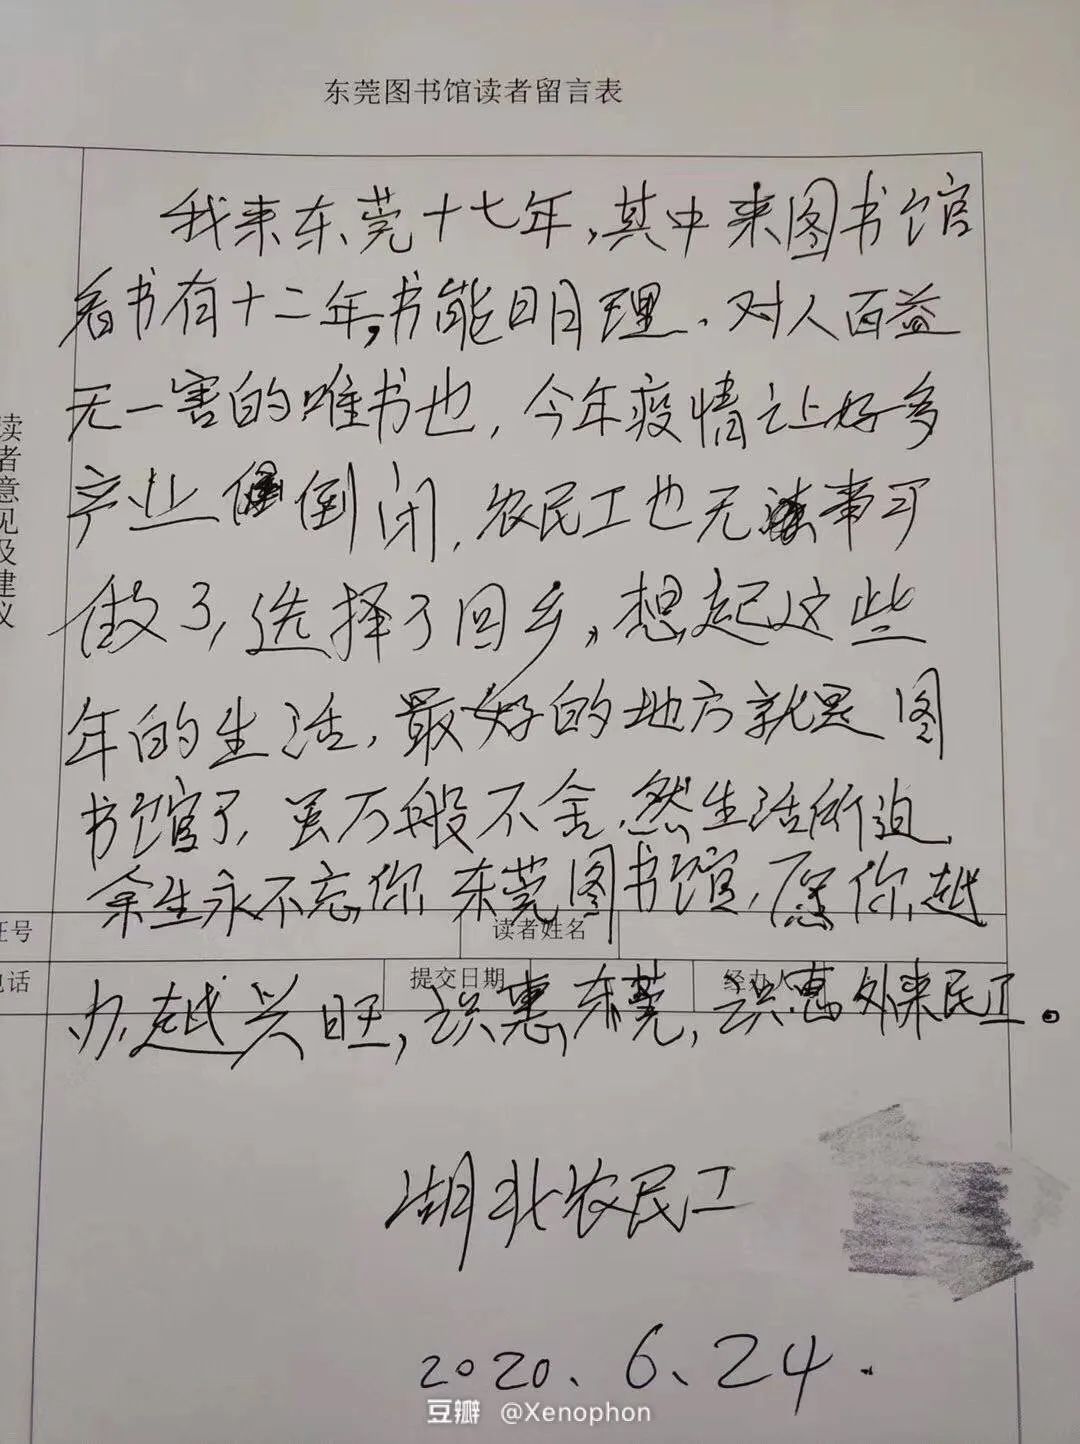 东莞图书馆读者留言表
读者意见及建议
我来东莞十七年,其中来图书馆
看书有十二年,书能明理、对人百益
无一害的唯书也,今年疫情让好多
产业倒闭,农民工也无事可
做了,选择了回乡,想起这些
年的生活,最好的地方就是图
书馆了,虽万般不舍,然生活所迫,
余生永不忘你,东莞图书馆,愿你越
证号
读者姓名
办越兴旺,识惠东莞,识惠外来民工。
电话
提交日期
经办人
湖北农民工
2020、6、24.
豆瓣 @Xenophon